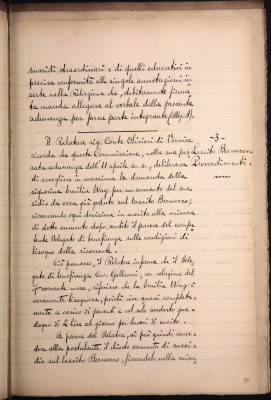 sussidi straordinari e di quelli educativi in
precisa conformità alle singole annotazioni in-
serte nella Relazione che, debitamente firma-
ta manda allegare al verbale della presente
adunanza per farne parte integrante (alleg. A).
Il Relatore sig. Conte Olivieri di Vernier
ricorda che questa Commissione, nella sua pre-
cedente adunanza dell'11 aprile u. s., deliberava
di accogliere in massima la domanda della
signorina Emilia Way per un aumento del sus-
sidio da essa già goduto sul lascito Bernocco;
riservando ogni decisione in merito alla misura
di detto aumento dopo sentito il parere del compe-
tente Delegato di beneficenza sulle condizioni di
bisogno della ricorrente.
-3-
Lascito Bernocco.
Provvedimenti.
Ciò premesso, il Relatore informa che il Dele-
gato di beneficenza Cav. Galleani, con relazione del
7 corrente mese, riferisce che la Emilia Way è
veramente bisognosa, poiché vive quasi completa-
mente a carico di parenti e col solo modesto gua-
dagno di 2 lire al giorno per lavori di cucito.
A parere del Relatore, si può quindi conce-
dere alla postulante il chiesto aumento di sussi-
dio sul lascito Bernocco, fissandolo nella misu-